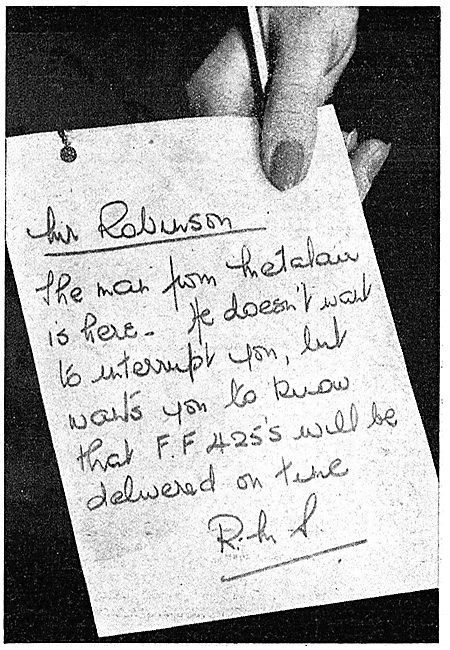 Mr Robinson
The man from Metalair
is here. He doesn't want
to interrupt you, but
wants you to know
that F.F 425's will be
delivered on time
R.M S.